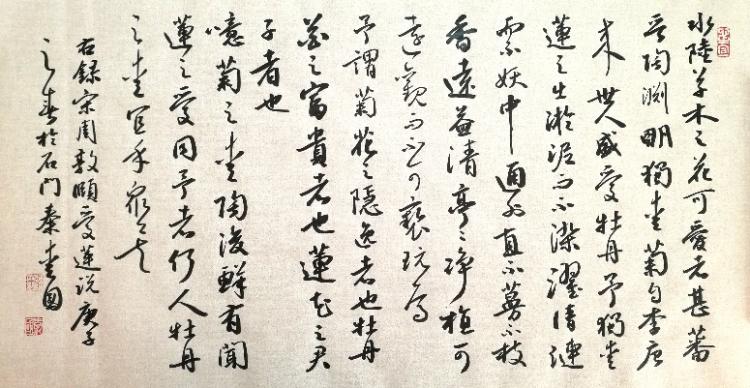 水陸草木之花可愛者甚蕃
晉陶淵明獨愛菊自李唐
来世人盛愛牡丹予獨愛
蓮之出淤泥而不染濯清漣
而不妖中通外直不蔓不枝
香遠益清亭々淨植可
遠觀而不可褻玩焉
予謂菊花之隱逸者也牡丹
花之富貴者也蓮花之君
子者也
噫菊之愛陶後鮮有聞
蓮之愛同予者何人牡丹
之愛宜乎衆矣
右録宋周敦頤愛蓮説庚子
之春於石門秦愛國